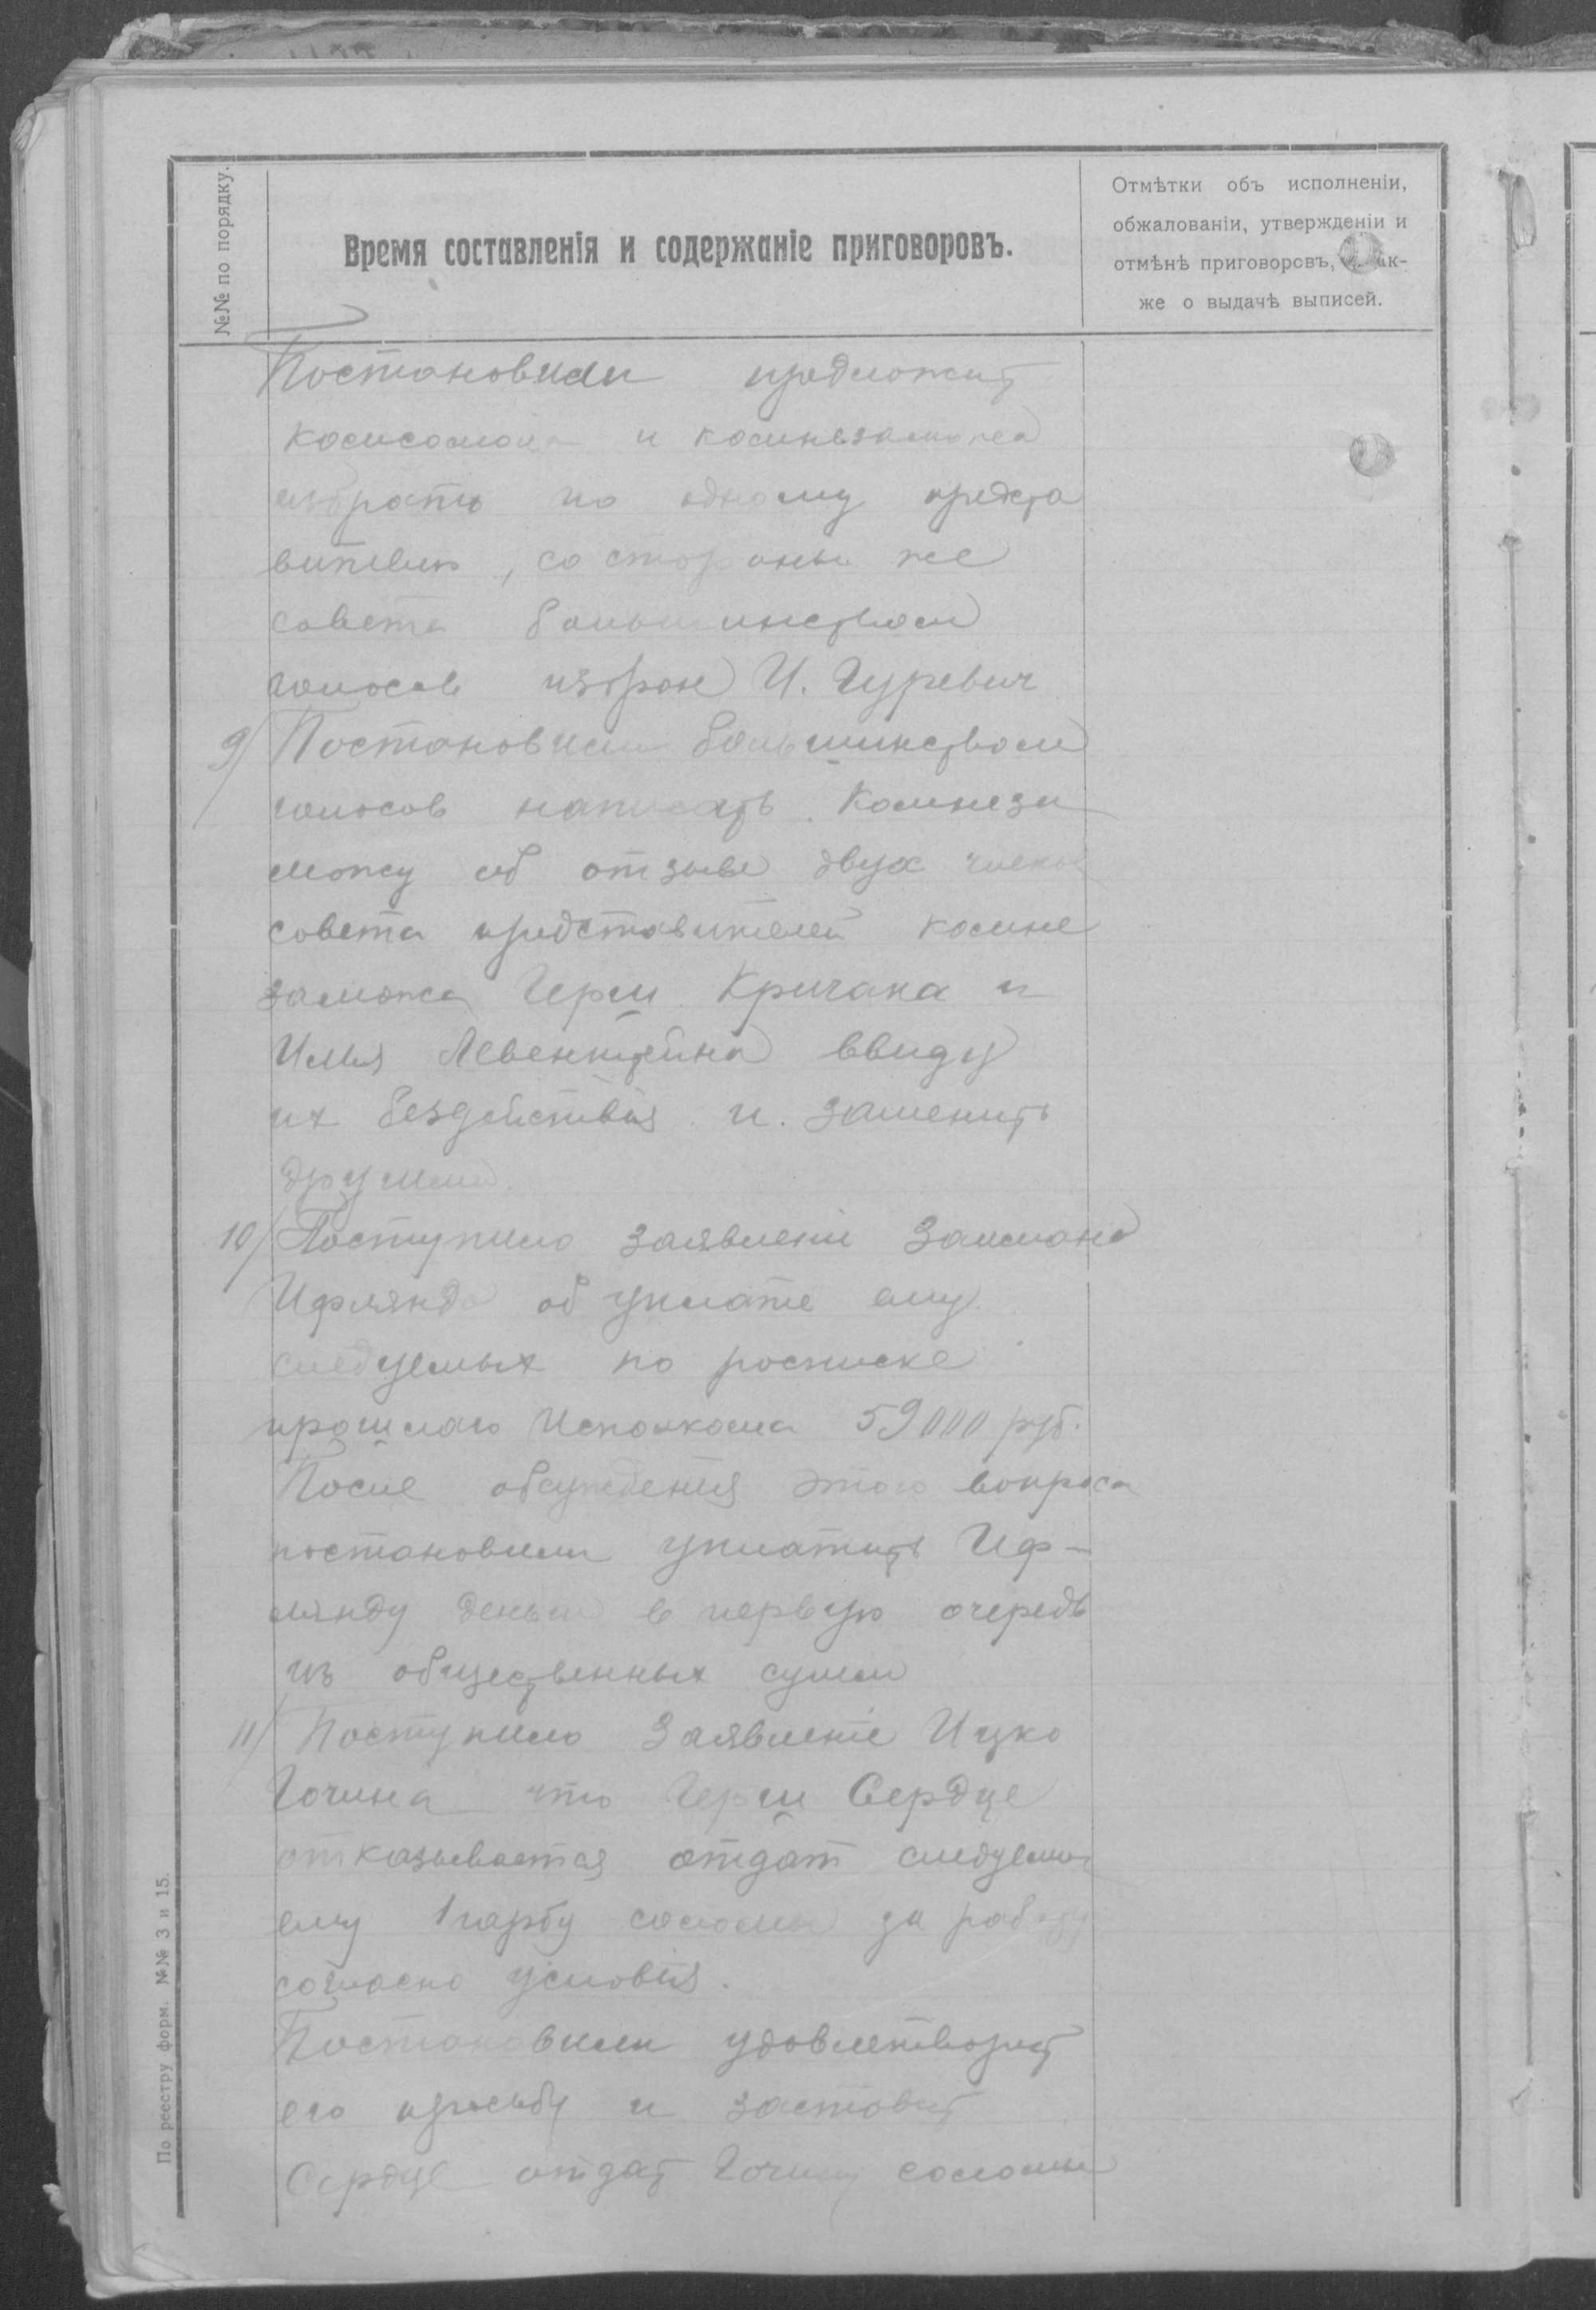 №№ по порядку.
Время составленія и содержаніе приговоровъ.
Отмѣтки объ исполненіи,
обжалованіи, утвержденіи и
отмѣнѣ приговоровъ, а так-
же о выдачѣ выписей.
Постановили предложит
комсомола и комнезаможа
избрать по одному предста
вителю, со стороны же
совета большинством
голосов избран И. Гуревич
9) Постановили большинством
голосов написать Комнеза
можу об отзыве двух членов
совета представителей комне
заможа Герш Кричака и
Илья Левенштейна ввиду
их бездействія и заменить
другими.
10) Поступило заявленіе Залмана
Ифлянда об уплате ему
следуемых по росписке
прошлаго Исполкома 59000 руб.
После обсуждения этого вопроса
постановили уплатить Иф-
лянду деньги в первую очередь
из общественных сумм
11) Поступило заявленіе Ицко
Гочина что Герш Сердце
отказывается отдат следуемы
ему 1 гарбу соломы за работу
согласно условія.
Постановили удовлетворит
его просьбу и заставит
Сердце отдат Гочину соломы
По реестру форм. №№ 3 и 15.